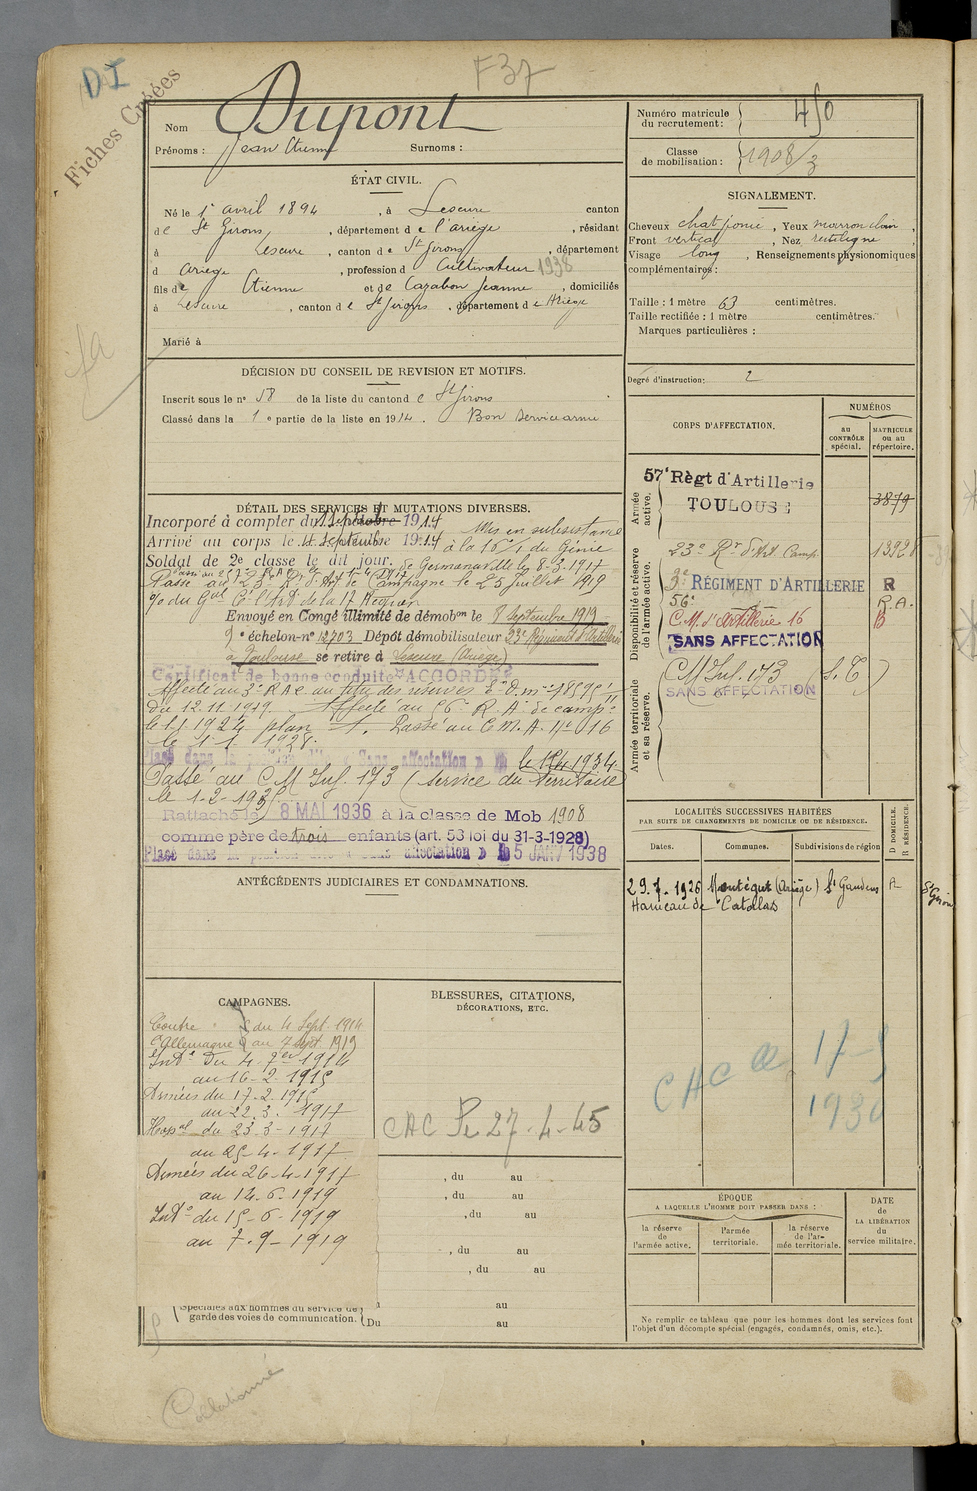 DI
Fiches Créées
F 37
Nom Dupont
Prénoms : Jean Etienne Surnoms :
Numéro matricule du recrutement : 450
Classe de mobilisation : 1908/3
ÉTAT CIVIL.
Né le 1er avril 1894, à Lescure canton
de St Girons, département de l'ariège, résidant
à Lescure, canton de St Girons, département
d Ariège, profession d Cultivateur 1938
fils de Etienne et de Cazabon Jeanne, domiciliés
à Lescure, canton de St Girons, département de Ariège
Marié à
SIGNALEMENT.
Cheveux chat foncé, Yeux marron clair,
Front vertical, Nez rectiligne,
Visage long, Renseignements physionomiques
complémentaires :
Taille : 1 mètre 63 centimètres.
Taille rectifiée : 1 mètre centimètres.
Marques particulières :
Degré d'instruction : 2
DÉCISION DU CONSEIL DE REVISION ET MOTIFS.
Inscrit sous le n° 58 de la liste du canton de St Girons
Classé dans la 1e partie de la liste en 1914. Bon service armé
DÉTAIL DES SERVICES ET MUTATIONS DIVERSES.
Incorporé à compter du 1 Septembre 1914
Arrivé au corps le 4 Septembre 1914
Mis en subsistance
à la 16/1 du Génie
Soldat de 2e classe le dit jour. de Germanaville le 8-3-1917
Passé au 23e Rt d'Art de Campagne le 25 Juillet 1919
Envoyé en Congé illimité de démobon le 8 Septembre 1919
9e échelon n° 12703 Dépôt démobilisateur 23e Régiment d'Artillerie
à Toulouse se retire à Lescure (Ariège)
Certificat de bonne conduite "ACCORDÉ"
Affecté au 3e R A C au titre des réserves
du 12.11.1919. Affecté au 56e R. A. de campe
Passé au C. M. A. n° 16
le 1 1 1928.
Passé au C M Inf. 173 (service du territoire
le 1-2-1935
Rattaché le 8 MAI 1936 à la classe de Mob 1908
comme père de trois enfants (art. 58 loi du 31-3-1928)
Placé dans la position dite « Sans affectation » le 15 JANV 1938
CORPS D'AFFECTATION.
NUMÉROS
au CONTRÔLE spécial.
MATRICULE ou au répertoire.
Armée active.
57e Règt d'Artillerie
TOULOUSE
3879
Disponibilité et réserve de l'armée active.
23e Rt d'Art. Camp.
3e RÉGIMENT D'ARTILLERIE R
56e R.A.
C.M. d'Artillerie 16 B
SANS AFFECTATION
Armée territoriale et sa réserve.
C M Inf. 173 (S. T)
SANS AFFECTATION
LOCALITÉS SUCCESSIVES HABITÉES
PAR SUITE DE CHANGEMENTS DE DOMICILE OU DE RÉSIDENCE.
D DOMICILE.
R RÉSIDENCE.
Dates. Communes. Subdivisions de région
29.7.1926 Montégut (Ariège) St Gaudens
Hameau de Catallas
St Girons
ANTÉCÉDENTS JUDICIAIRES ET CONDAMNATIONS.
CAMPAGNES.
Contre l'Allemagne
du 4 Sept. 1914
au 7 Sept. 1919
Intre Du 4. 7bre 1914
au 16-2. 1915
Armées du 17-2. 1915
au 22.3. 1917
Hopal du 23-3-1917
au 25-4-1917
Armées du 26-4-1917
au 14-6-1919
Intre du 15-6-1919
au 7.9-1919
spéciales aux hommes du service de
garde des voies de communication. Du au
BLESSURES, CITATIONS,
DÉCORATIONS, ETC.
CAC Pe 27-4-45
, du au
, du au
, du au
, du au
, du au
au
CAC
17-9
1930
ÉPOQUE
A LAQUELLE L'HOMME DOIT PASSER DANS :
la réserve de l'armée active.
l'armée territoriale.
la réserve de l'armée territoriale.
DATE
de
LA LIBÉRATION
du
service militaire.
Ne remplir ce tableau que pour les hommes dont les services font
l'objet d'un décompte spécial (engagés, condamnés, omis, etc.).
Collationné